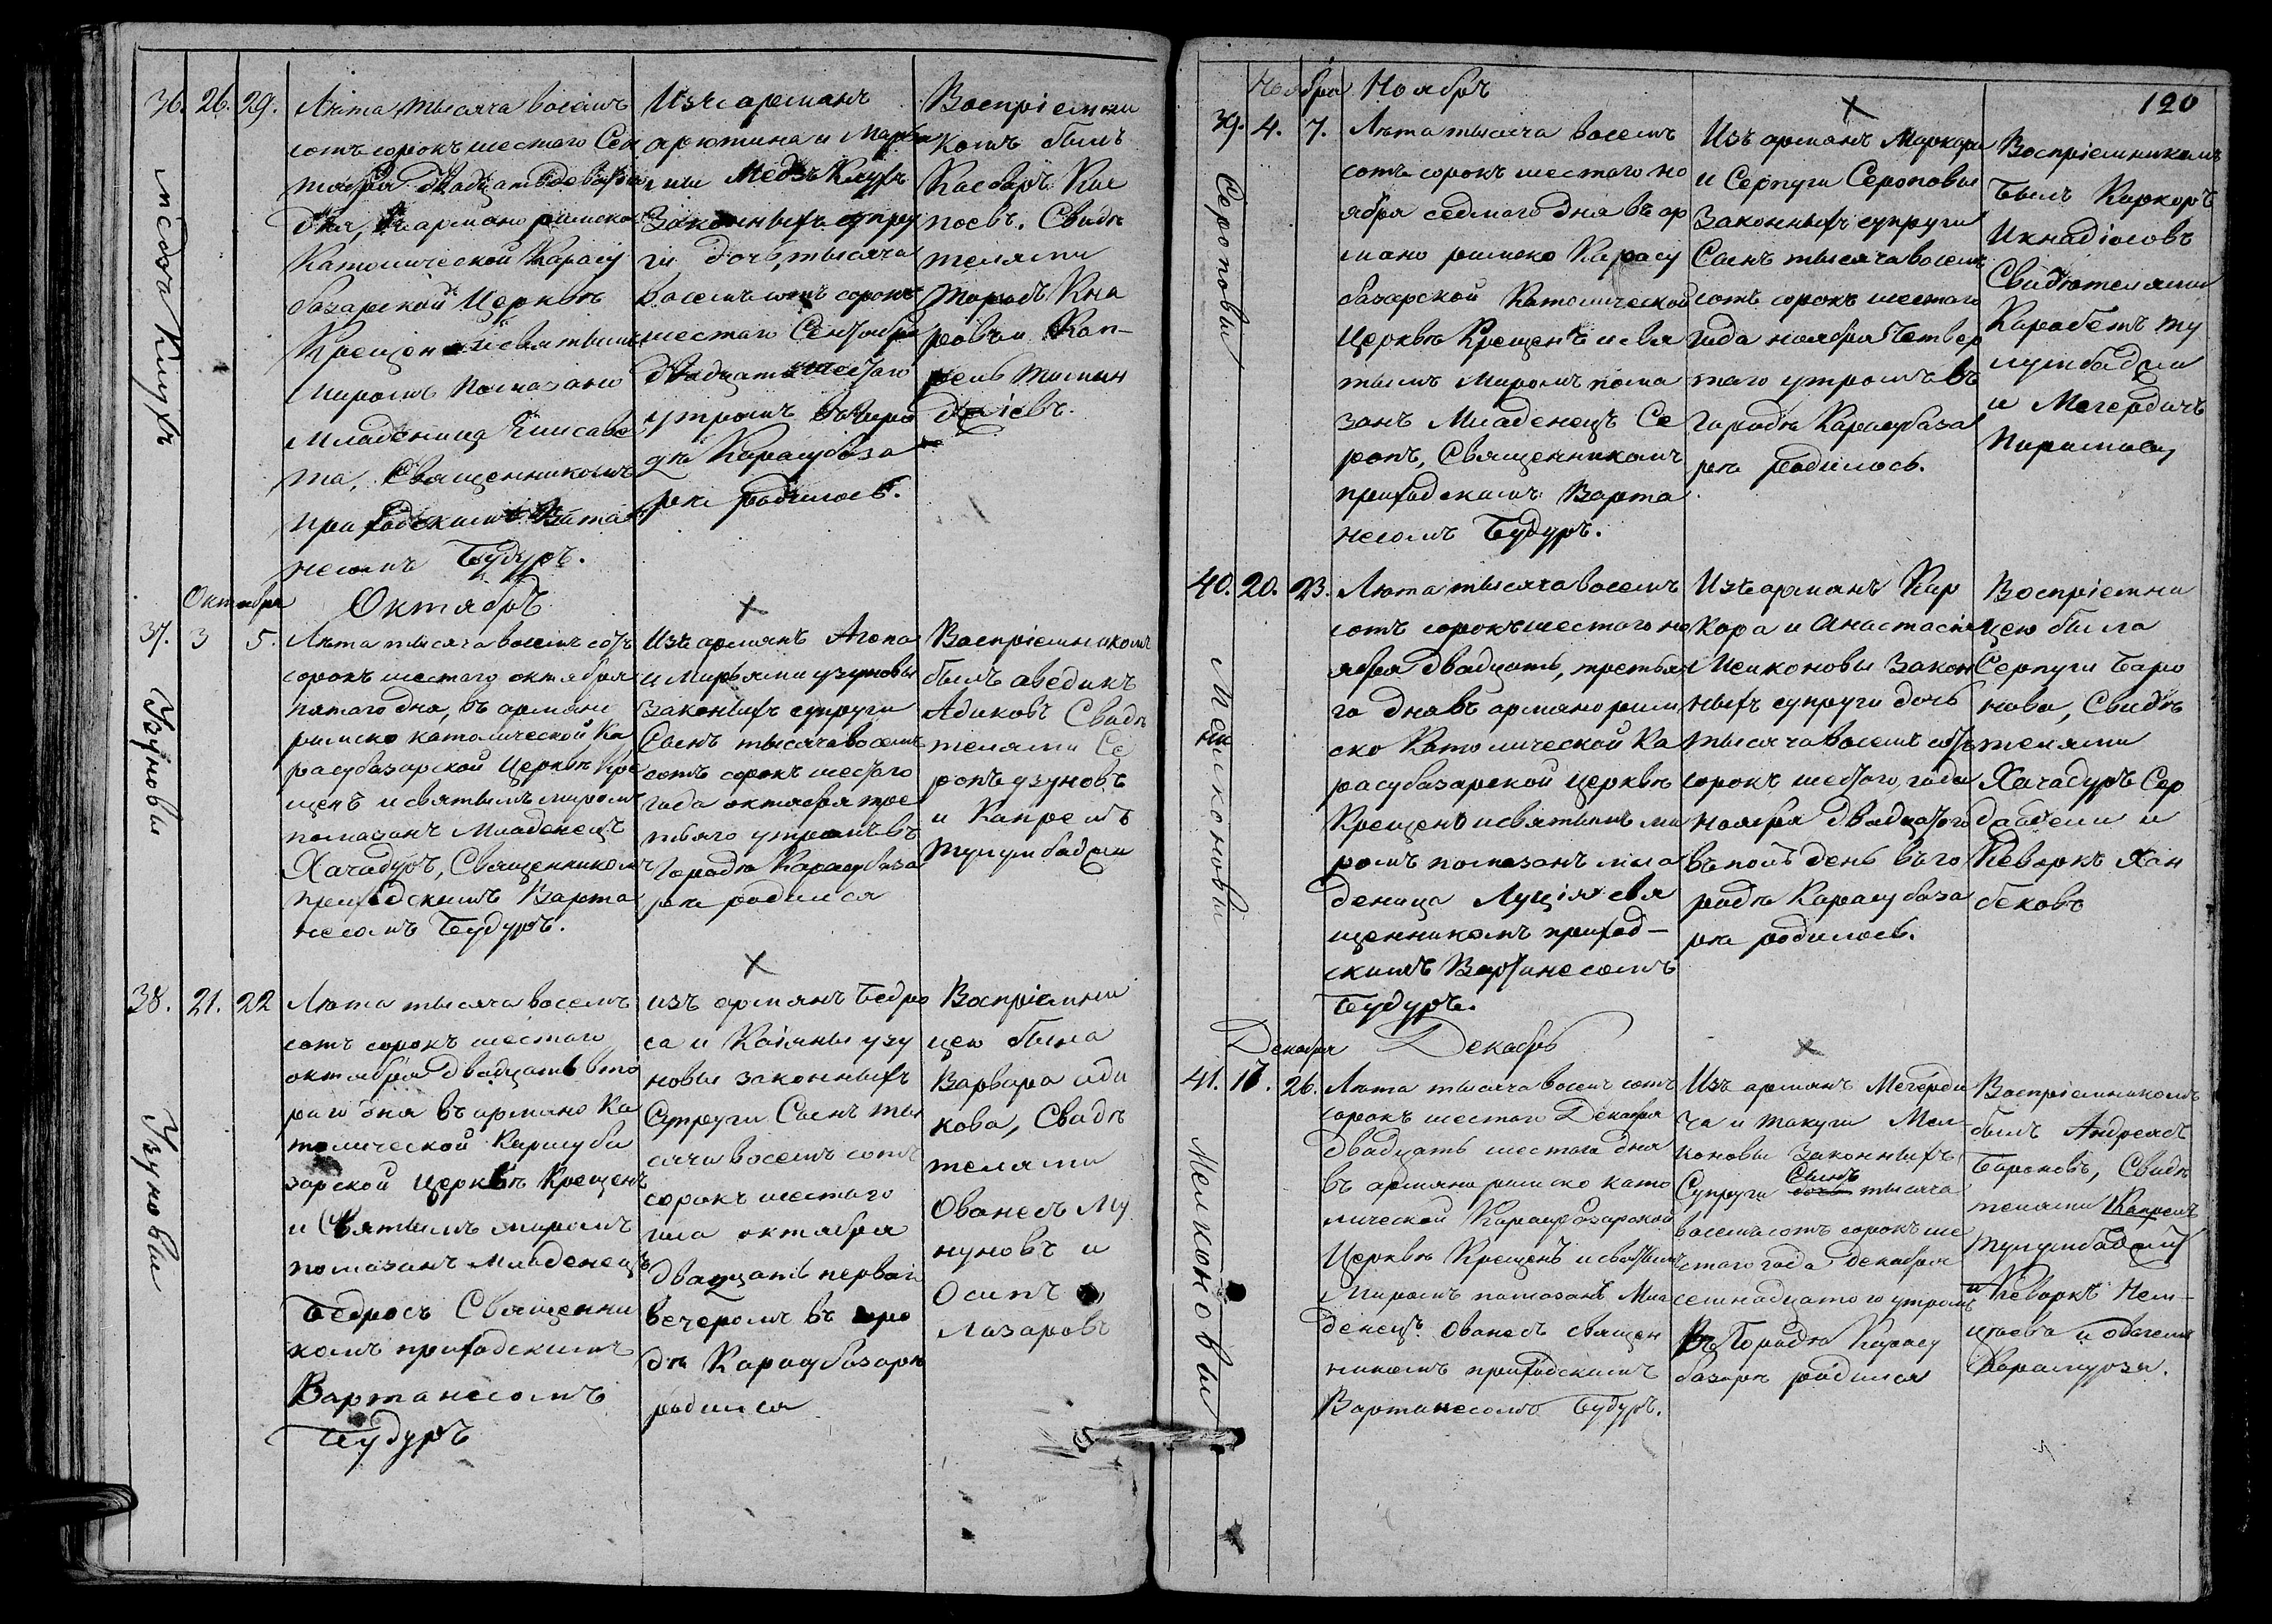 36. 26. 29.
Лѣта тысяча восемъ
сотъ сорокъ шестаго Сен
тября двадцать девятаго
дня, въ армяно римско
Католической Карасу
базарской Церквѣ
Крещена и святымъ
Миромъ помазана
Младеница Елисаве
та, Священникомъ
приходскимъ Варта
несомъ Будуръ.
Изъ армянъ
арютина и
Медзъ
Законныхъ супру
ги дочь, тысяча
восемъ сотъ сорокъ
шестаго Сентября
двадцать шестаго
утромъ въ горо
дѣ Карасубаза
рѣ родилось.
Воспріемни
комъ былъ
Каспаръ Кас
посвъ. Свидѣ
телями
Торосъ
и Кап-
рель
Октября
Октябрь
37. 3 5.
Узуновы
Лѣта тысяча восемъ сотъ
сорокъ шестаго октября
пятаго дня, въ армяно
римско католической Ка
расубазарской Церквѣ Кре
щенъ и святымъ миромъ
помазанъ Младенецъ
Хачадуръ, Священникомъ
приходскимъ Варта
несомъ Будуръ.
Изъ армянъ Агопа
и Марьями узуновы
законныхъ супруги
Сынъ тысяча восемъ
сотъ сорокъ шестаго
года октября тре
тьяго утромъ въ
Городѣ Карасубаза
рѣ родился
Воспріемникомъ
былъ аведикъ
Адиковъ Свидѣ
телями Се
ропъ узуновъ
и Капрелъ
Тулумбаджи
38. 21. 22
Узуновы
Лѣта тысяча восемъ
сотъ сорокъ шестаго
октября двадцать вто
раго дня въ армяно Ка
толической Карасуба
зарской Церквѣ Крещенъ
и Святымъ миромъ
помазанъ Младенецъ
Бедросъ Священни
комъ приходскимъ
Вартанесомъ
Будуръ
изъ армянъ Бедро
са и Каіяны узу
новы законныхъ
Супруги Сынъ ты
сяча восемъ сотъ
сорокъ шестаго
октября
двадцать перваго
вечеромъ въ горо
дѣ Карасубазарѣ
родился
Воспріемни
цею была
Варвара ади
кова, Свидѣ
телями
Ованесъ Му
нуновъ и
Осипъ
Лазаровъ
120
Ноября
Ноябрь
39. 4. 7.
Сероповы
Лѣта тысяча восемъ
сотъ сорокъ шестаго но
ября седмаго дня въ ар
мяно римско Карасу
базарской Католической
Церквѣ Крещенъ и свя
тымъ Миромъ пома
занъ Младенецъ Се
ропъ, Священникомъ
приходскимъ Варта
несомъ Будуръ.
Изъ армянъ Маркара
и Серпуги Сероповы
Законныхъ супруги
Сынъ тысяча восемъ
сотъ сорокъ шестаго
года ноября Четвер
таго утромъ въ
Городѣ Карасубаза
рѣ родилось.
Воспріемникомъ
былъ Киркоръ
Икнадіосовъ
Свидѣтелями
Карабетъ ту
лумбаджи
и Мегердичъ
40. 20. 23.
Меликоновы
Лѣта тысяча восемъ
сотъ сорокъ шестаго но
ября двадцать, третья
го дня въ армяно рим
ско Католической Ка
расубазарской церквѣ
Крещенъ и святымъ ми
ромъ помазанъ мла
деница Луція свя
щенникомъ приход-
скимъ Вартанесомъ
Будуръ.
Изъ армянъ Кир
кора и Анастасіи
Меликоновы Закон
ныхъ супруги дочь
тысяча восемъ сотъ
сорокъ шестаго, года
ноября двадцатаго
въ полъ день въ го
родѣ Карасубаза
рѣ родилось.
Воспріемни
цею была
Серпуги Баро
нова, Свидѣ
телями
Хачадуръ Сер
и
Кеворкъ Хан
бековъ
Декабря
Декабрь
41. 17. 26.
Меликоновы
Лѣта тысяча восемъ сотъ
сорокъ шестаго Декабря
Двадцать шестаго дня
въ армяно римско като
лической Карасубазарской
Церквѣ Крещенъ и святымъ
Миромъ помазанъ Мла
денецъ Ованесъ священ
никомъ приходскимъ
Вартанесомъ Будуръ.
Изъ армянъ Мегерди
ча и такуги Мели
коновы Законныхъ
Сынъ
Супруги дочь тысяча
восемъ сотъ сорокъ ше
стаго года декабря
семнадцатого утромъ
Въ Городѣ Карасу
базарѣ родился
Воспріемникомъ
былъ Андреасъ
Бароновъ, Свидѣ
телями Капрелъ
Тулумбаджи
и Кеворкъ
и